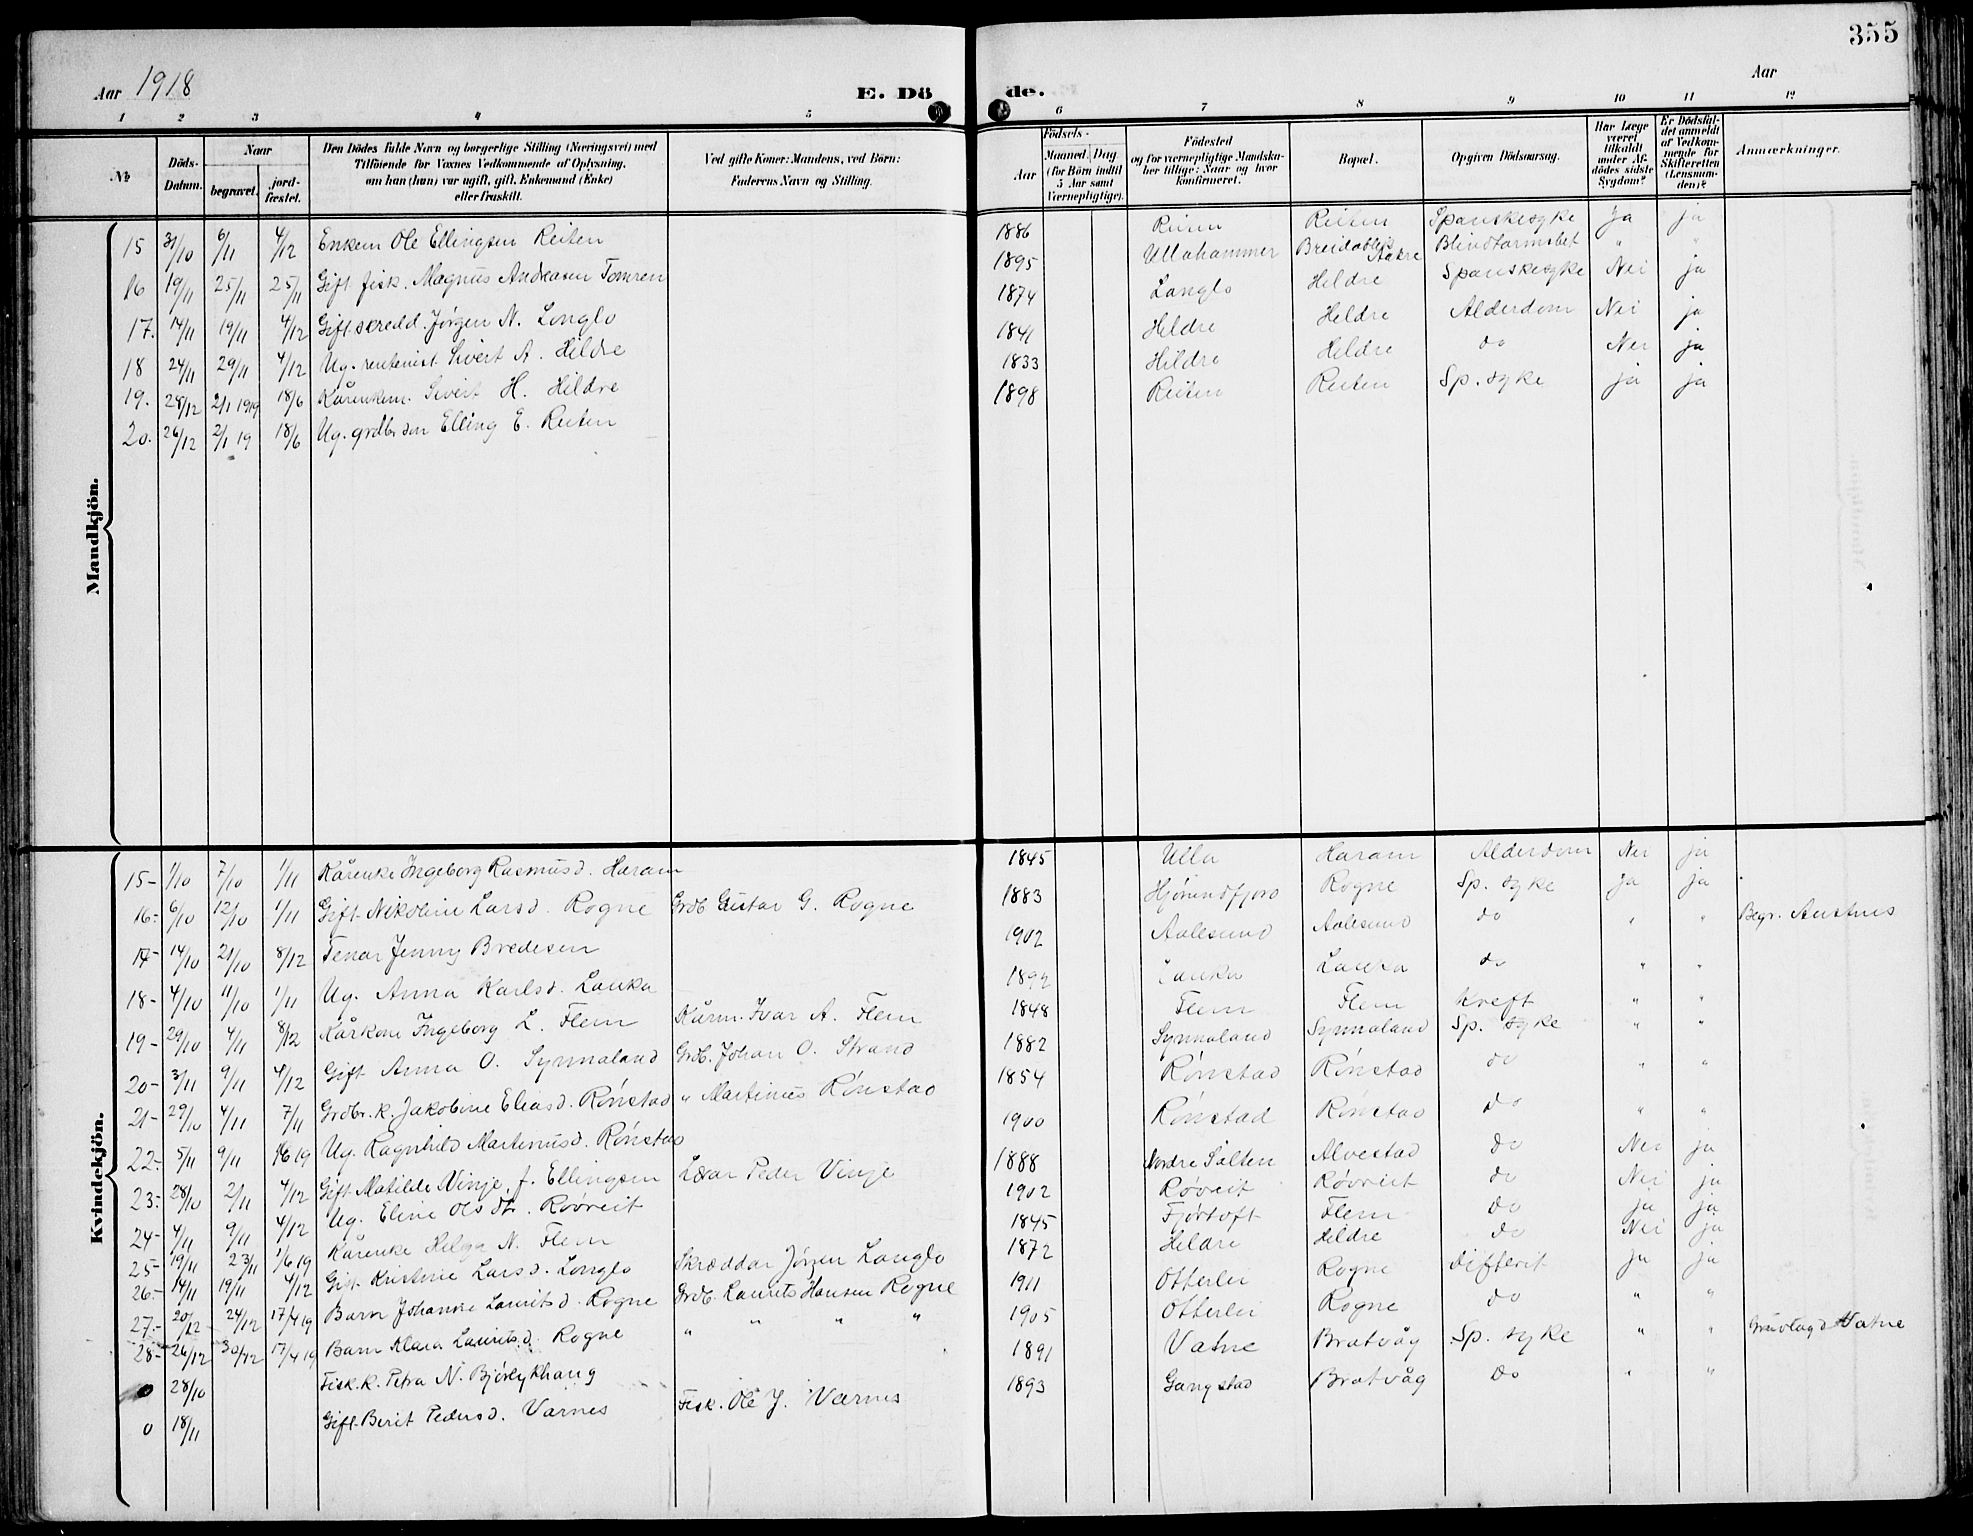 355
Aar 1918
E. Döde.
Aar
1 2 3 4 5 6 7 8 9 10 11 12
№
Döds-Datum.
Naar
begravet.
jord-fæstet.
Den Dödes fulde Navn og borgerlige Stilling (Næringsvei) med
Tilföiende for Voxnes Vedkommende af Oplysning,
om han (hun) var ugift, gift, Enkemand (Enke)
eller fraskilt.
Ved gifte Koner: Mandens, ved Börn:
Faderens Navn og Stilling.
Födsels-
Aar
Maaned. Dag
(for Börn indtil
5 Aar samt
Værnepligtige).
Födested
og for værnepligtige Mandskaber tillige: Naar og hvor
konfirmeret.
Bopæl.
Opgiven Dödsaarsag.
Har Læge
været
tilkaldt
under Af-
dödes sidste
Sygdom?
Er Dödsfal-
det anmeldt
af Vedkom-
mende for
Skifteretten
(Lensman-
den)?
Anmærkninger.
Mandkjön.
15 31/10 6/11 4/12 Enkem Ole Ellingsen Reiten 1886 Reiten Reiten Spanskesyke ja ja
16 19/11 25/11 25/11 Gift fisk. Magnus Andreasen Tomren 1895 Ullahammer Breidablik Aakre Blindtarmsbet " "
17. 14/11 19/11 4/12 Gift skredd. Jørgen N. Longlo 1874 Langlo Hildre Spanskesyke Nei ja
18 24/11 29/11 4/12 Ug. rentenist Sivert A. Hildre 1841 Hildre Hildre Alderdom Nei ja
19. 28/12 2/1 1919 18/6 Kårenkem. Sivert H. Hildre 1833 Hildre Hildre do Nei ja
20. 26/12 2/1 19 18/6 Ug. grdbr søn Elling E. Reiten 1898 Reiten Reiten Sp. syke ja ja
Kvindekjön.
15- 1/10 7/10 1/11 Kårenke Ingeborg Rasmusd. Haram 1845 Ulla Haram Alderdom Nei ja
16- 6/10 12/10 1/11 Gift Nikoline Larsd. Rogne Grdb. Gustav G. Rogne 1883 Hjørundfjord Rogne Sp. syke ja ja
17- 14/10 21/10 8/12 Tenar Jenny Bredesen 1902 Aalesund Aalesund do " " Begr. Austnes
18- 4/10 11/10 1/11 Ug. Anna Karlsd. Lauka Lauka Lauka do " "
19- 29/10 4/11 8/12 Kårkone Ingeborg L. Flem Kårm. Ivar A. Flem 1848 Flem Flem Kreft " "
20- 3/11 9/11 4/12 Gift Anna O. Synnaland Grdb. Johan O. Strand 1882 Synnaland Synnaland Sp. syke " "
21- 29/10 4/11 7/11 Grdbr. k. Jakobine Eliasd. Rønstad " Martinus Rønstad 1854 Rønstad Rønstad do " "
22- 5/11 9/11 Ug. Ragnhild Martinusd. Rønstad 1900 Rønstad Rønstad do " "
23- 28/10 2/11 4/12 Gift Matilde Vinje, f. Ellingsen Lærar Peder Vinje 1888 Nordre Salten Alvestad do Nei ja
24- 4/11 9/11 4/12 Ug. Eline Olsdtr. Røvreit 1902 Røvreit Røvreit do Nei ja
25- 19/11 23/11 1/6 19 Kårenke Helga N. Flem 1845 Fjørtoft Flem do ja ja
26- 14/11 19/11 4/12 Gift Kristine Larsd. Longlo Skræddar Jørgen Longlo 1872 Hildre Hildre do Nei ja
27- 20/12 24/12 17/4 19 Barn Johanne Lauritsd. Rogne Grdb. Laurits Hansen Rogne 1911 Otterlei Rogne Difterit ja ja
28- 26/12 30/12 17/4 19 Barn Klara Lauritsd. Rogne " " " " 1905 Otterlei Rogne do " "
0 28/10 Fisk. k. Petra N. Bjørlykhaug 1891 Vatne Bratvåg Sp. syke " " Vatne
0 18/11 Gift Berit Pedersd. Varnes Fisk. Ole J. Værnes 1893 Gangstad Bratvåg do " "